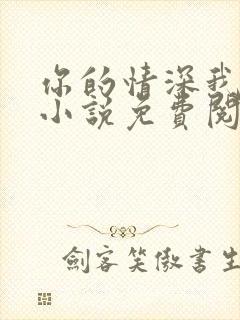 你的情深我
小说免費閱
劍客笑傲書生